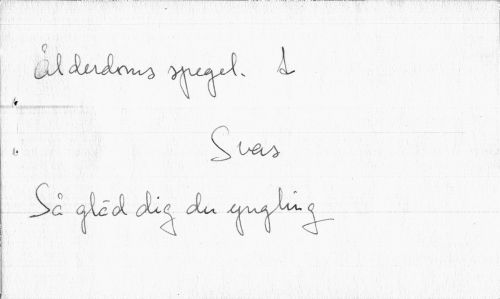 Ålderdoms spegel. 1
Svas
Så gläd dig du yngling